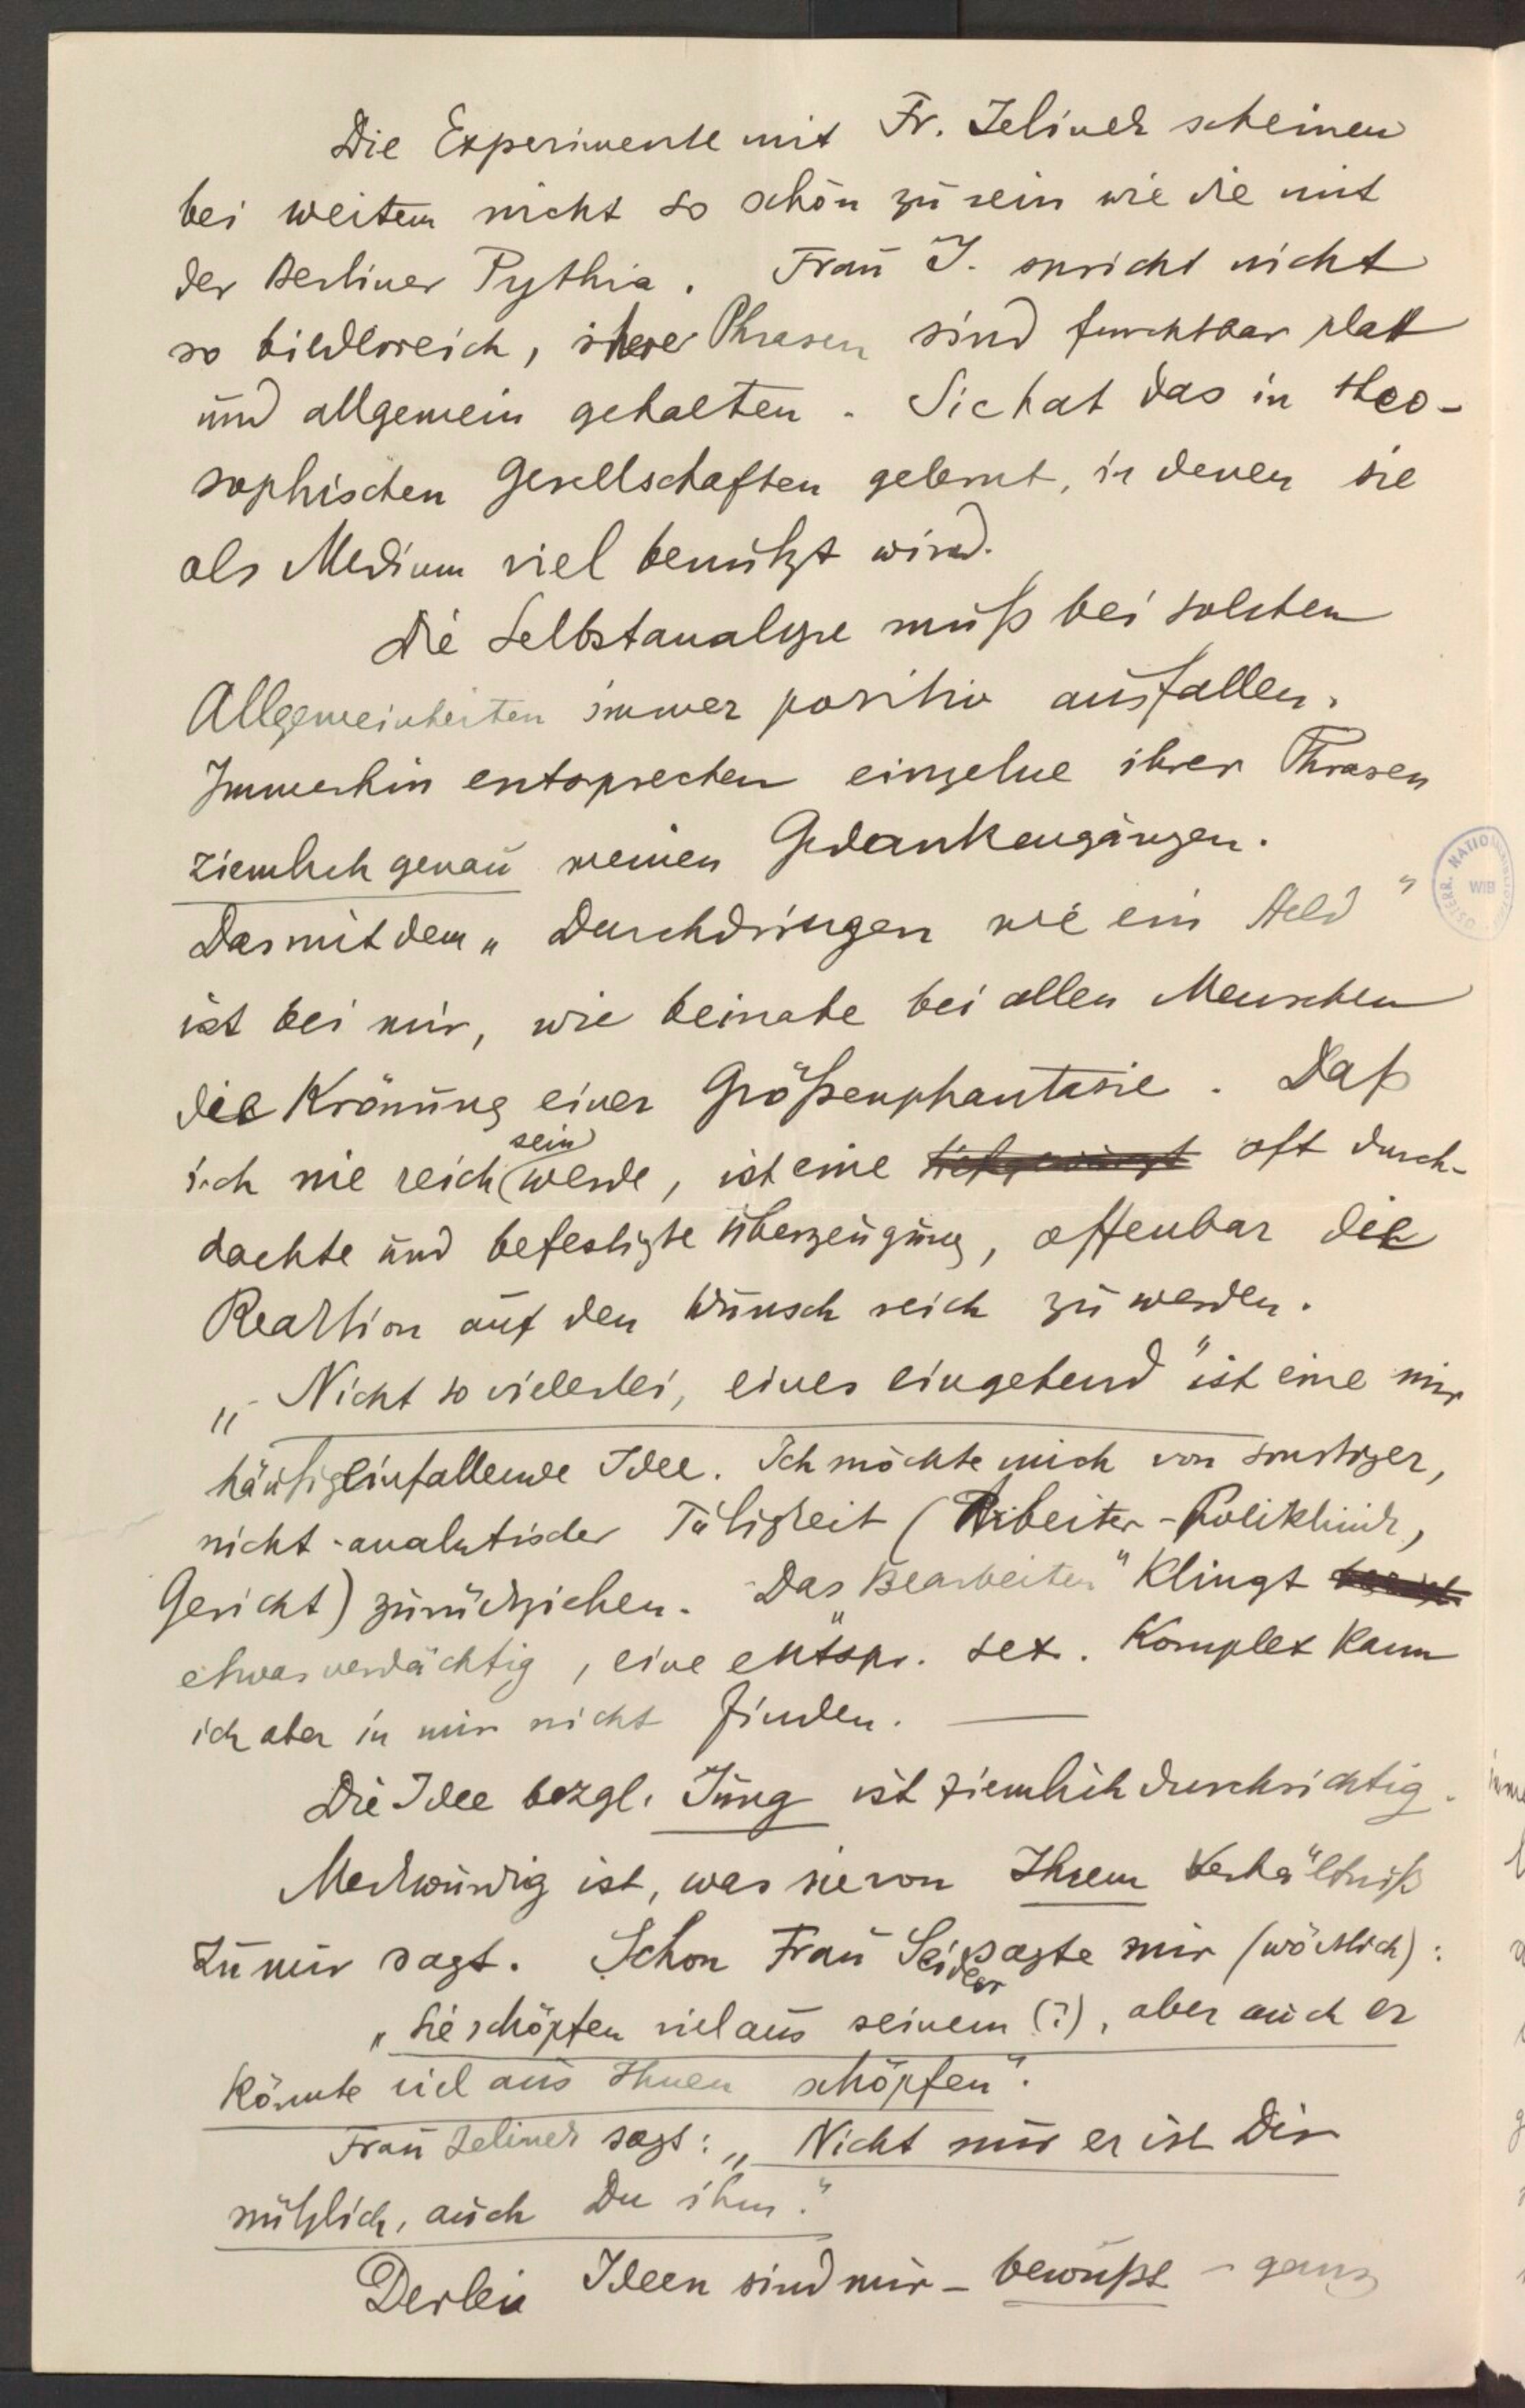 Die Experimente mit Fr. Jelinek scheinen
bei weitem nicht so schön zu sein wie die mit
der Berliner Pythia. Frau J. spricht nicht
so bilderreich, ihre Phrasen sind furchtbar platt
und allgemein gehalten. Sie hat das in theo-
sophischen Gesellschaften gelernt, in denen sie
als Medium viel benützt wird.
Die Selbstanalyse muß bei solchen
Allgemeinheiten immer positiv ausfallen.
Immerhin entsprechen einzelne ihrer Phrasen
ziemlich genau meinen Gedankengängen.
Das mit dem „Durchdringen wie ein Held"
ist bei mir, wie beinahe bei allen Menschen
die Krönung einer Größenphantasie. Daß
sein
ich nie reich werde, ist eine oft durch-
dachte und befestigte Überzeugung, offenbar die
Reaktion auf den Wunsch reich zu werden.
„Nicht so vielerlei, eines eingehend" ist eine mir
häufig einfallende Idee. Ich möchte mich von sonstiger,
nicht-analytischer Tätigkeit (Arbeiter-Poliklinik,
Gericht) zurückziehen. Das „Bearbeiten" klingt
etwas verdächtig, eine entspr. sex. Komplex kann
ich aber in mir nicht finden. —
Die Idee bezgl. Jung ist ziemlich durchsichtig.
Merkwürdig ist, was sie von Ihrem Verhältniß
zu mir sagt. Schon Frau Seidler sagte mir (wörtlich):
„Sie schöpfen viel aus seinem (?), aber auch er
könnte viel aus Ihnen schöpfen".
Frau Jelinek sagt: „Nicht nur er ist Dir
nützlich, auch Du ihm."
Derlei Ideen sind mir – bewußt – ganz
ÖSTERR. NATIONALBIBLIOTHEK
WIEN